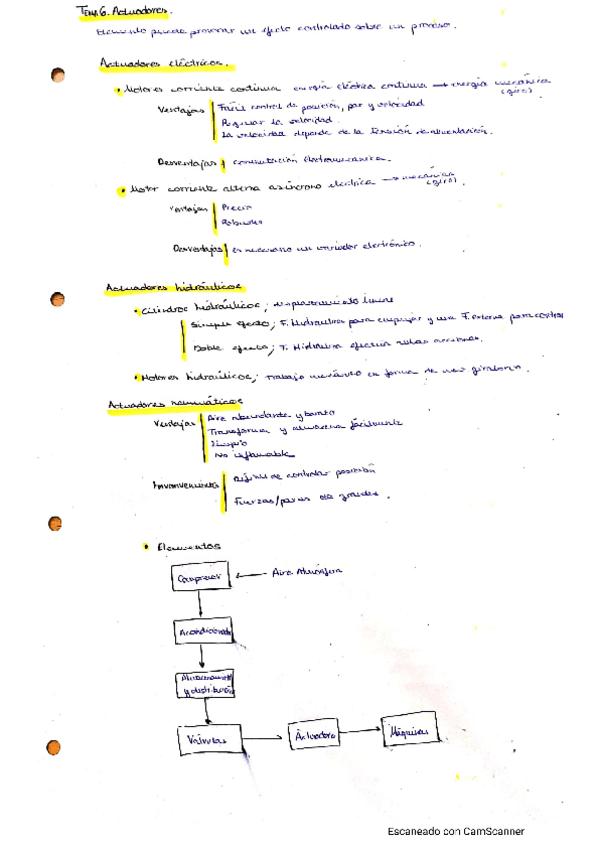 Tema 6. Actuadores.
Elemento puede provocar un efecto controlado sobre un proceso.
Actuadores eléctricos.
• Motores corriente continua energía eléctrica continua → energía mecánica (giro)
Ventajas
Fácil control de posición, par y velocidad
Regular la velocidad.
La velocidad depende de la tensión de alimentación.
Desventajas
conmutación electromecánica.
• Motor corriente alterna asíncrono eléctrica → mecánica (giro).
Ventajas
Precio
Robustez
Desventajas
es necesario un variador electrónico.
Actuadores hidráulicos
• Cilindros hidráulicos; desplazamiento lineal
Simple efecto; F. Hidráulica para empujar y una F. externa para
Doble efecto; F. Hidráulica efectúa ambas acciones.
• Motores hidráulicos; trabajo mecánico en forma de giratorio.
Actuadores neumáticos
Ventajas
Aire abundante y barato
Transforma y almacena fácilmente
Limpio
No inflamable
Inconvenientes
Difícil de controlar posición
Fuerzas/pares grandes.
• Elementos
Compresor ← Aire Atmósfera
Acondicionado
Almacenamiento y distribución
Válvulas → Actuadora → Máquinas
Escaneado con CamScanner